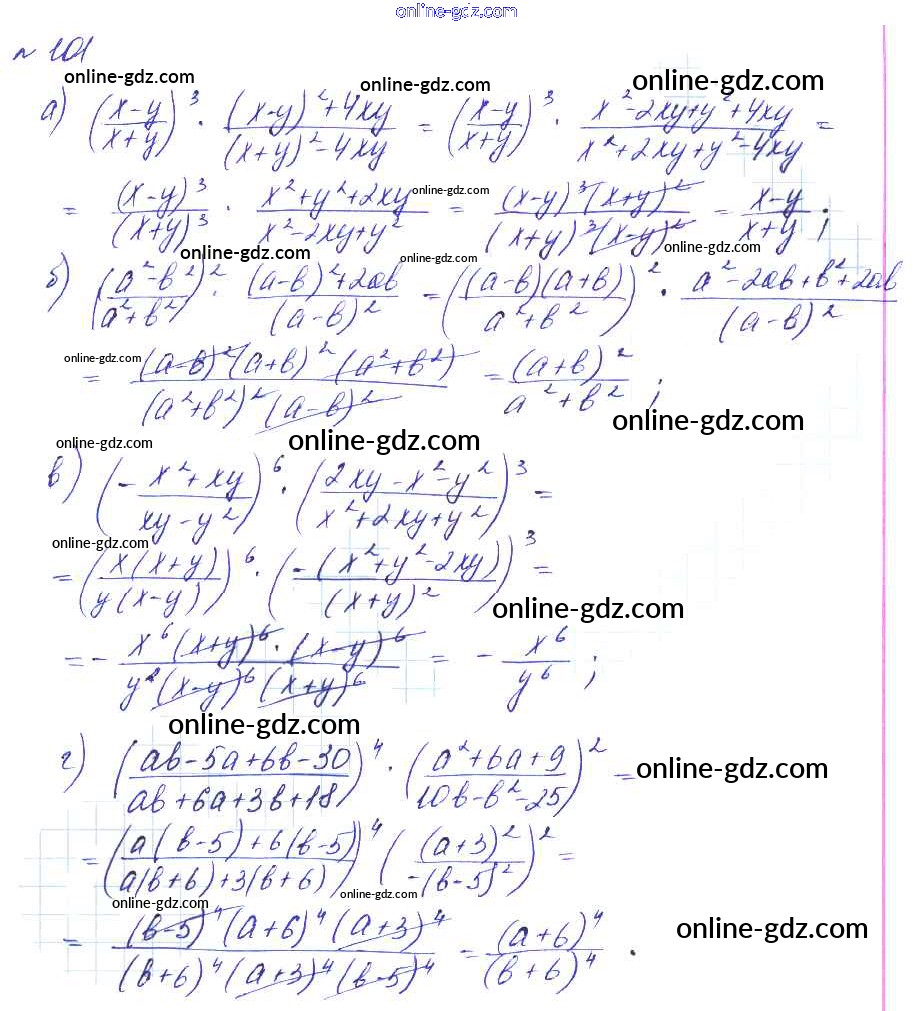 online-gdz.com
№ 101
online-gdz.com online-gdz.com online-gdz.com
а) ((x-y)/(x+y))³ · ((x-y)²+4xy)/((x+y)²-4xy) = ((x-y)/(x+y))³ · (x²-2xy+y²+4xy)/(x²+2xy+y²-4xy) =
= (x-y)³/(x+y)³ · (x²+y²+2xy)/(x²-2xy+y²) online-gdz.com = ((x-y)³(x+y)²)/((x+y)³(x-y)²) = (x-y)/(x+y) ;
online-gdz.com online-gdz.com online-gdz.com
б) ((a²-b²)/(a²+b²))² · ((a-b)²+2ab)/(a-b)² = (((a-b)(a+b))/(a²+b²))² · (a²-2ab+b²+2ab)/(a-b)²
online-gdz.com
= ((a-b)²(a+b)²(a²+b²))/((a²+b²)²(a-b)²) = (a+b)²/(a²+b²) ;
online-gdz.com
online-gdz.com online-gdz.com
в) (-(x²+xy)/(xy-y²))⁶ · ((2xy-x²-y²)/(x²+2xy+y²))³ =
online-gdz.com
= ((x(x+y))/(y(x-y)))⁶ · ((-(x²+y²-2xy))/(x+y)²)³ =
online-gdz.com
= - (x⁶(x+y)⁶·(x-y)⁶)/(y⁶(x-y)⁶(x+y)⁶) = - x⁶/y⁶ ;
online-gdz.com
г) ((ab-5a+6b-30)/(ab+6a+3b+18))⁴ · ((a²+6a+9)/(10b-b²-25))² = online-gdz.com
= ((a(b-5)+6(b-5))/(a(b+6)+3(b+6)))⁴ ((a+3)²/(-(b-5)²))² =
online-gdz.com online-gdz.com
= ((b-5)⁴(a+6)⁴(a+3)⁴)/((b+6)⁴(a+3)⁴(b-5)⁴) = (a+6)⁴/(b+6)⁴ .
online-gdz.com